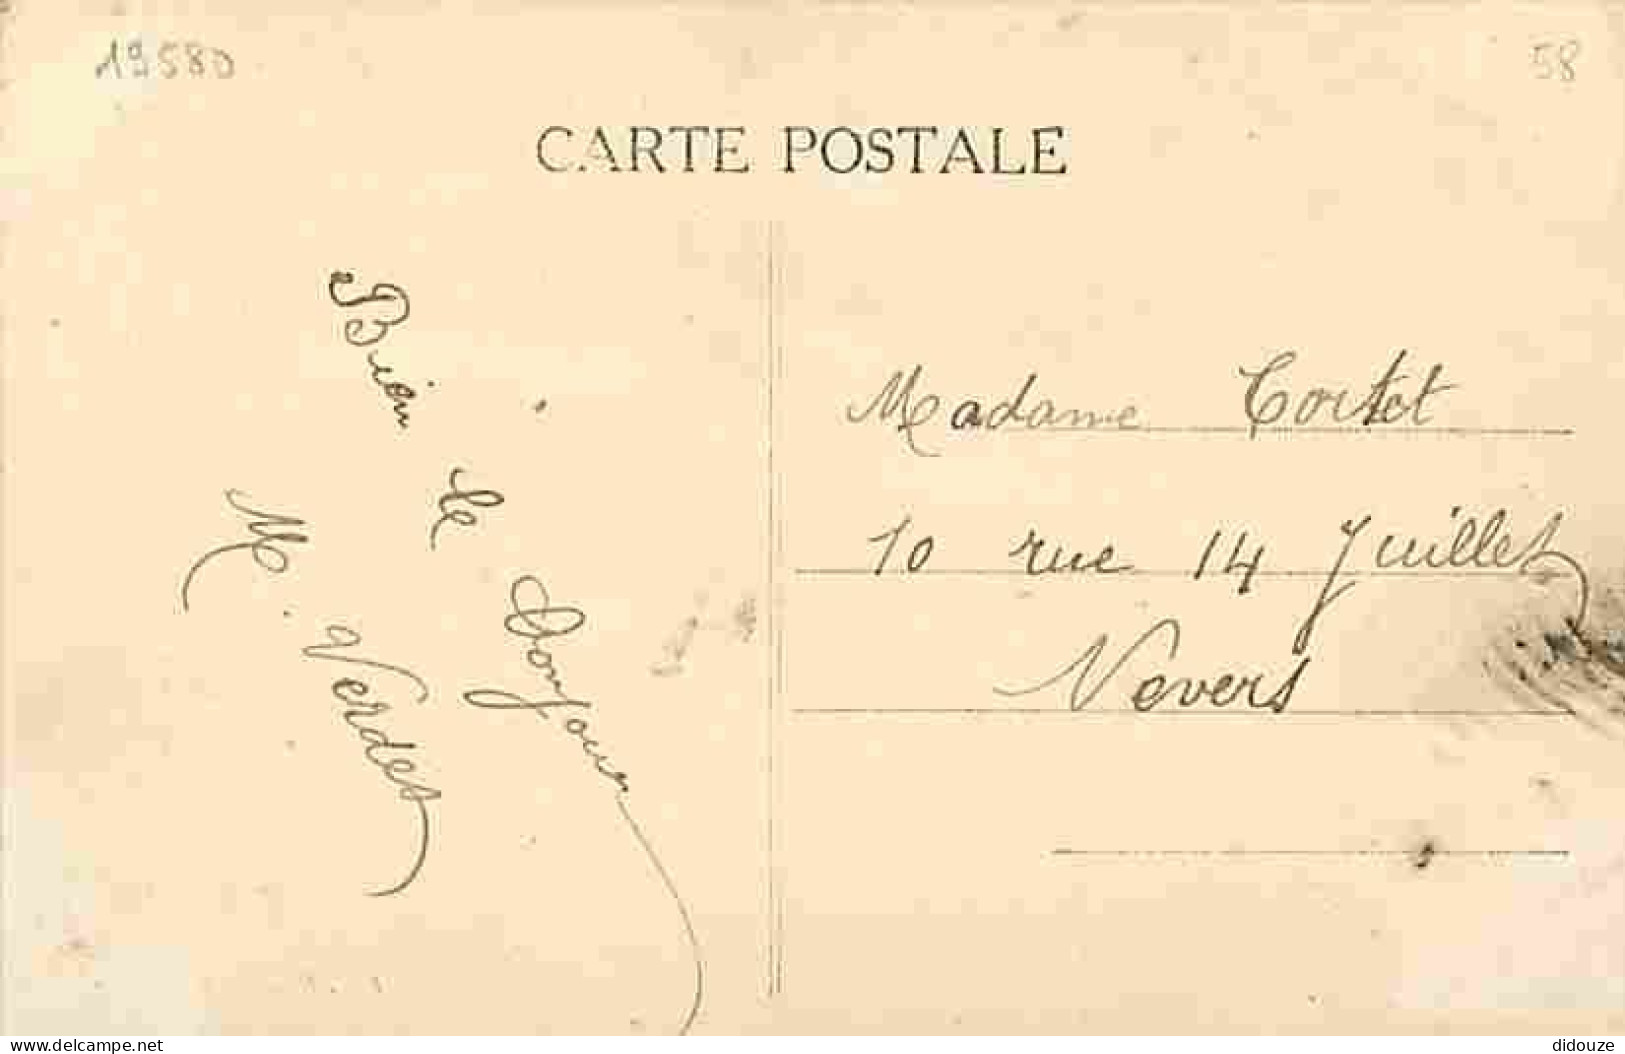 19580
58
CARTE POSTALE
Bien le Bonjour
M. Verdet
Madame Tortet
10 rue 14 Juillet
Nevers
www.delcampe.net
didouze